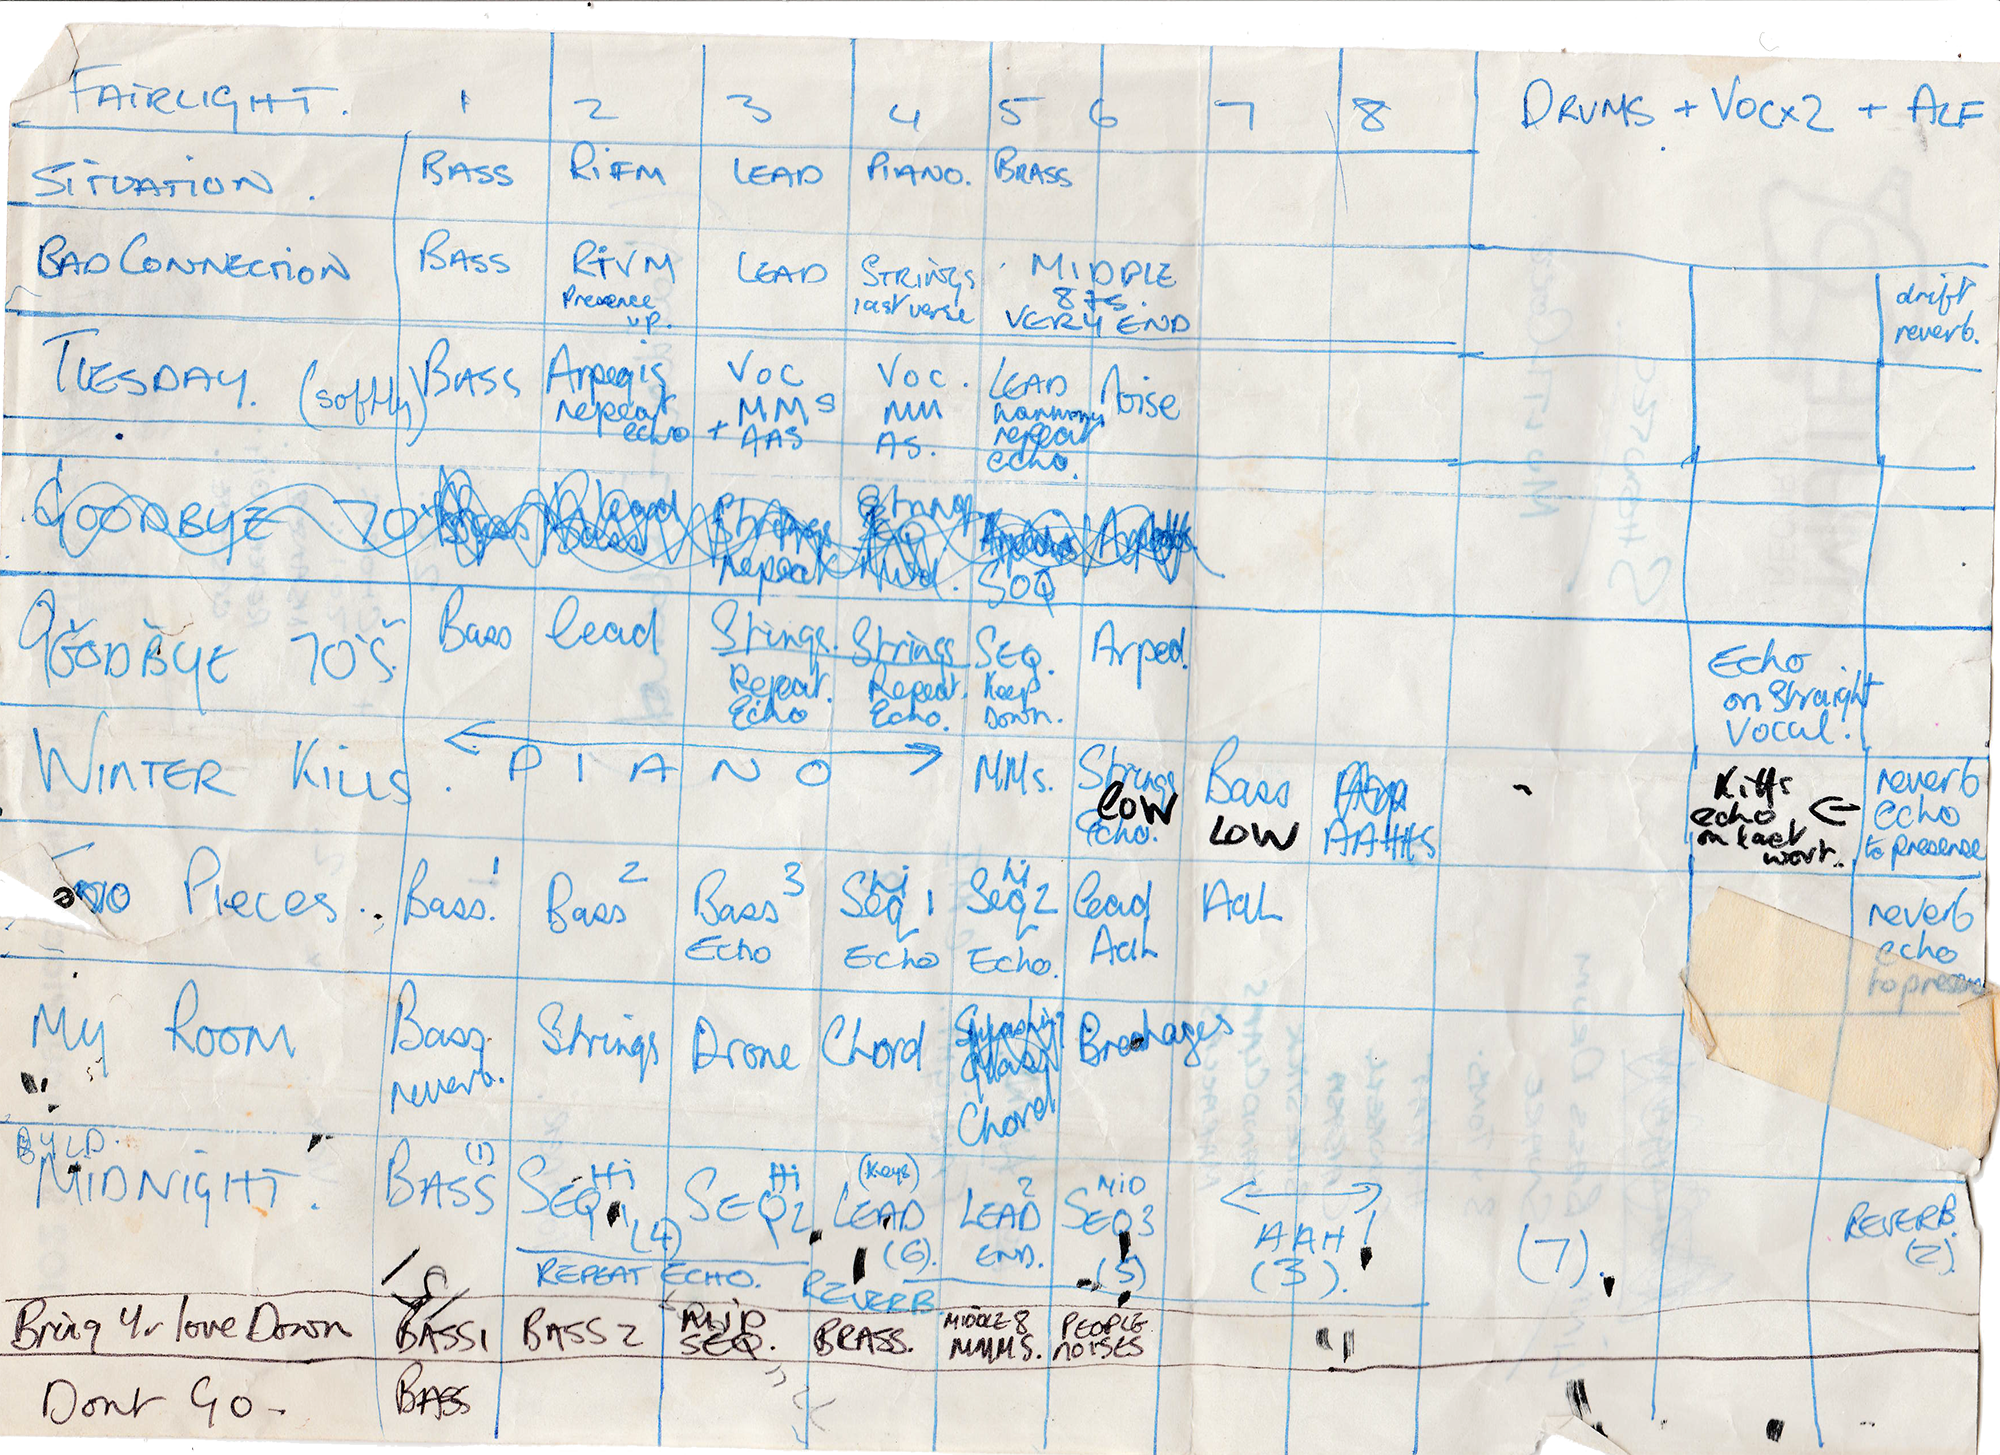 FAIRLIGHT. 1 2 3 4 5 6 7 8 DRUMS + VOCX2 + ALF
SITUATION. BASS RiTHM LEAD PIANO. BRASS
BAD CONNECTION BASS RTVM LEAD STRINGS MIDDLE
Presence last verse 8ts. drift
up. VERY END reverb.
TUESDAY. (softly) BASS Arpegis VOC VOC. LEAD Noise
repeat MMS MM harmony
echo + AAS AS. repeat
echo.
GOODBYE 70's Bass lead Strings Strings
Bass repeat SEQ
GOODBYE 70'S. Bass lead Strings. Strings SEQ. Arped. Echo
Repeat. Repeat. Keep on Straight
Echo Echo. Down. Vocal.
WINTER KILLS. PIANO MMs. Strings Bass Kills reverb
LOW LOW AAHHS echo echo
Echo. on last to presence
word..
Too Pieces. Bass. 1 Bass 2 Bass 3 Seq 1 hi Seq 2 hi lead AaL reverb
Echo Echo Echo. AaL echo
to presence
My Room Bass Strings Drone Chord Breakages
reverb. Chord
BYLD.
MIDNIGHT. BASS (1) SEQ 1 Hi SEQ 2 Hi (Keys) LEAD 2 MID
(4) LEAD END. SEQ 3 AAH! REVERB.
(6). (5) (3). (7). (2)
REPEAT ECHO. REVERB
Bring Yr love Down BASS 1 BASS 2 MID BRASS. MIDDLE 8 PEOPLE
SEQ. MMMS. NOISES
Dont Go - BASS